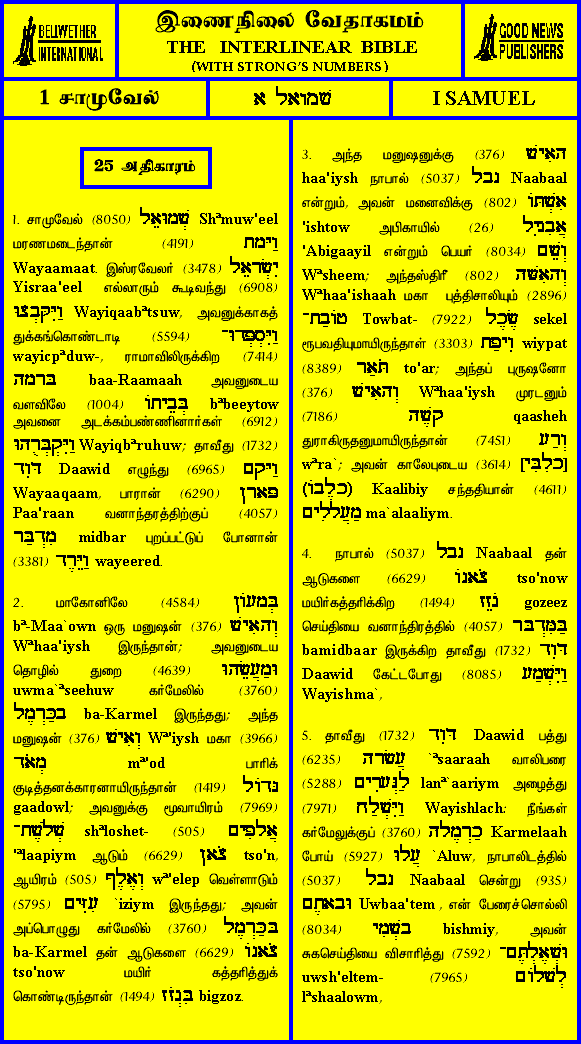 BELLWETHER
INTERNATIONAL
இணைநிலை வேதாகமம்
THE INTERLINEAR BIBLE
(WITH STRONG'S NUMBERS)
GOOD NEWS
PUBLISHERS
1 சாமுவேல்
שמואל א
I SAMUEL
25 அதிகாரம்
1. சாமுவேல் (8050) שְׁמוּאֵל Shªmuw'eel
மரணமடைந்தான் (4191) וַיָּמָת
Wayaamaat. இஸ்ரவேலர் (3478) יִשְׂרָאֵל
Yisraa'eel எல்லாரும் கூடிவந்து (6908)
וַיִּקָּבְצוּ Wayiqaabªtsuw, அவனுக்காகத்
துக்கங்கொண்டாடி (5594) וַיִּסְפְּדוּ־
wayicpªduw-, ராமாவிலிருக்கிற (7414)
בָּרָמָה baa-Raamaah அவனுடைய
வளவிலே (1004) בְּבֵיתוֹ bªbeeytow
அவனை அடக்கம்பண்ணினார்கள் (6912)
וַיִּקְבְּרֻהוּ Wayiqbªruhuw; தாவீது (1732)
דָּוִד Daawid எழுந்து (6965) וַיָּקָם
Wayaaqaam, பாரான் (6290) פָּארָן
Paa'raan வனாந்தரத்திற்குப் (4057)
מִדְבַּר midbar புறப்பட்டுப் போனான்
(3381) וַיֵּרֶד wayeered.
2. மாகோனிலே (4584) בְּמָעוֹן
bª-Maa`own ஒரு மனுஷன் (376) וְהָאִישׁ
Wªhaa'iysh இருந்தான்; அவனுடைய
தொழில் துறை (4639) וּמַעֲשֵׂהוּ
uwma`ªseehuw கர்மேலில் (3760)
בַכַּרְמֶל ba-Karmel இருந்தது; அந்த
மனுஷன் (376) וְאִישׁ Wª'iysh மகா (3966)
מְאֹד mª'od பாரிக்
குடித்தனக்காரனாயிருந்தான் (1419) גָּדוֹל
gaadowl; அவனுக்கு மூவாயிரம் (7969)
שְׁלֹשֶׁת־ shªloshet- (505) אֲלָפִים
'ªlaapiym ஆடும் (6629) צֹאן tso'n,
ஆயிரம் (505) וְאֶלֶף wª'elep வெள்ளாடும்
(5795) עִזִּים `iziym இருந்தது; அவன்
அப்பொழுது கர்மேலில் (3760) בַּכַּרְמֶל
ba-Karmel தன் ஆடுகளை (6629) צֹאנוֹ
tso'now மயிர் கத்தரித்துக்
கொண்டிருந்தான் (1494) בִּגְזֹז bigzoz.
3. அந்த மனுஷனுக்கு (376) הָאִישׁ
haa'iysh நாபால் (5037) נָבָל Naabaal
என்றும், அவன் மனைவிக்கு (802) אִשְׁתּוֹ
'ishtow அபிகாயில் (26) אֲבִגָיִל
'Abigaayil என்றும் பெயர் (8034) וְשֵׁם
Wªsheem; அந்தஸ்திரீ (802) וְהָאִשָּׁה
Wªhaa'ishaah மகா புத்திசாலியும் (2896)
טוֹבַת־ Towbat- (7922) שֶׂכֶל sekel
ரூபவதியுமாயிருந்தாள் (3303) וִיפַת wiypat
(8389) תֹּאַר to'ar; அந்தப் புருஷனோ
(376) וְהָאִישׁ Wªhaa'iysh முரடனும்
(7186) קָשֶׁה qaasheh
துராகிருதனுமாயிருந்தான் (7451) וְרַע
wªra`; அவன் காலேபுடைய (3614) [כָלִבִּי]
(כָלִבּוֹ) Kaalibiy சந்ததியான் (4611)
מַעֲלָלִים ma`alaaliym.
4. நாபால் (5037) נָבָל Naabaal தன்
ஆடுகளை (6629) צֹאנוֹ tso'now
மயிர்கத்தரிக்கிற (1494) גֹזֵז gozeez
செய்தியை வனாந்திரத்தில் (4057) בַּמִּדְבָּר
bamidbaar இருக்கிற தாவீது (1732) דָּוִד
Daawid கேட்டபோது (8085) וַיִּשְׁמַע
Wayishma`,
5. தாவீது (1732) דָּוִד Daawid பத்து
(6235) עֲשָׂרָה `ªsaaraah வாலிபரை
(5288) לַנְּעָרִים lanª`aariym அழைத்து
(7971) וַיִּשְׁלַח Wayishlach: நீங்கள்
கர்மேலுக்குப் (3760) כַּרְמֶלָה Karmelaah
போய் (5927) עֲלוּ `Aluw, நாபாலிடத்தில்
(5037) נָבָל Naabaal சென்று (935)
וּבָאתֶם Uwbaa'tem , என் பேரைச்சொல்லி
(8034) בִשְׁמִי bishmiy, அவன்
சுகசெய்தியை விசாரித்து (7592) וּשְׁאֶלְתֶּם־
uwsh'eltem- (7965) לְשָׁלוֹם
lªshaalowm,